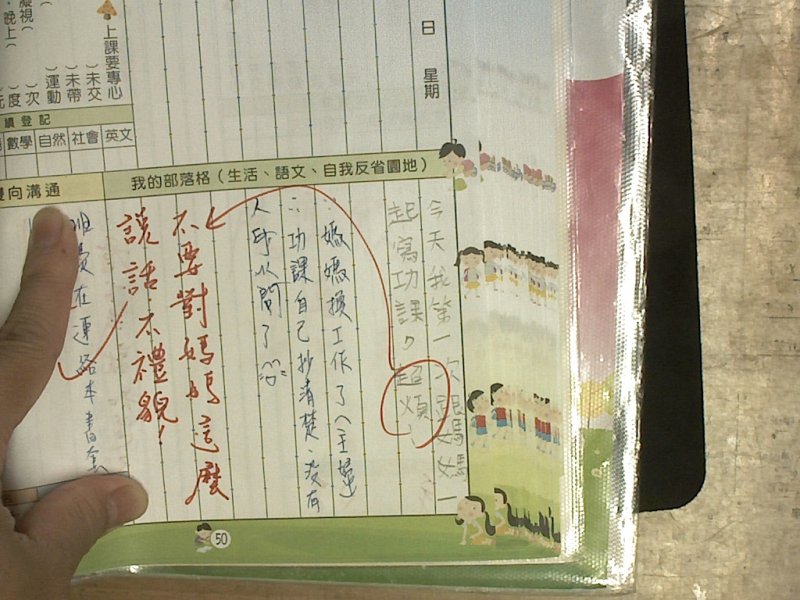 日 星期
上課要專心
）未交
）未帶
）運動
）度
）次
凝視
晚上（
績登記
數學 自然 社會 英文
雙向溝通
我的部落格（生活、語文、自我反省園地）
今天我第一次跟媽媽一
起寫功課，超煩
媽媽換工作了
功課自己抄清楚，沒有
人可以問了
不要對媽媽這麼
說話不禮貌！
在連絡本書套
50